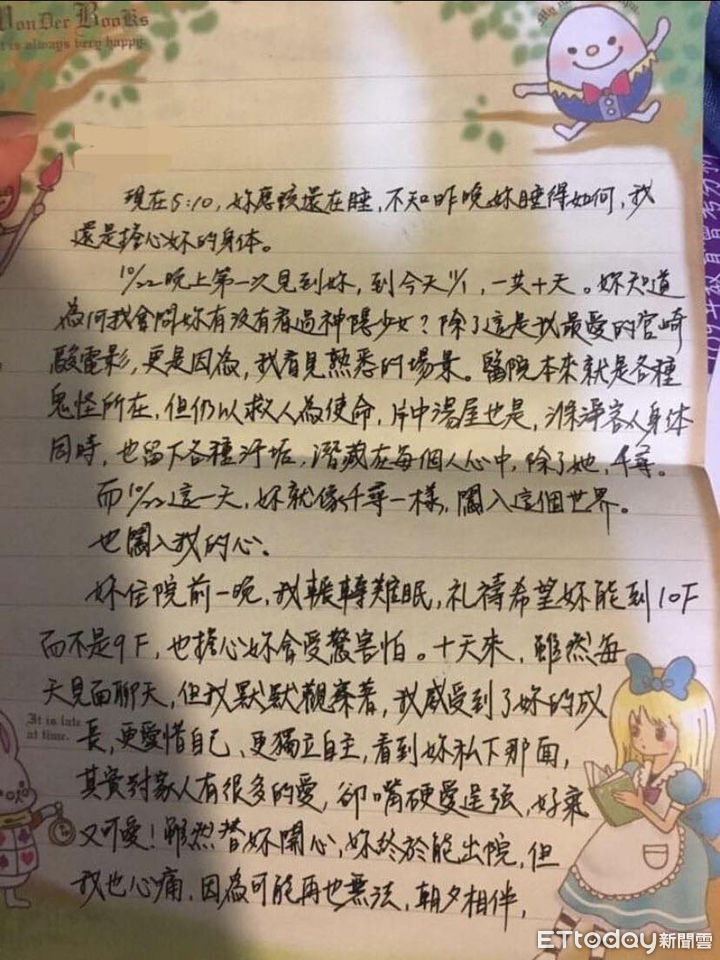 WonDer BooKs
It is always very happy.
現在5:10,妳應該還在睡,不知昨晚妳睡得如何,我
還是擔心妳的身体。
10/22晚上第一次見到妳,到今天11/1,一共十天。妳知道
為何我會問妳有沒有看過神隱少女?除了這是我最愛的宮崎
駿電影,更是因為,我看見熟悉的場景。醫院本來就是各種
鬼怪所在,但仍以救人為使命,片中湯屋也是,滌淨客人身体
同時,也留下各種汙垢,潛藏在每個人心中,除了她,千尋。
而10/22這一天,妳就像千尋一樣,闖入這個世界。
也闖入我的心。
妳住院前一晚,我輾轉難眠,礼禱希望妳能到10F
而不是9F,也擔心妳會受驚害怕。十天來,雖然每
天見面聊天,但我默默觀察著,我感受到了妳的成
長,更愛惜自己、更獨立自主,看到妳私下那面,
其實對家人有很多的愛,卻嘴硬愛逞強,好乖
又可愛!雖然替妳開心,妳終於能出院,但
我也心痛,因為可能再也無法,朝夕相伴,
It is late
at time.
ETtoday新聞雲